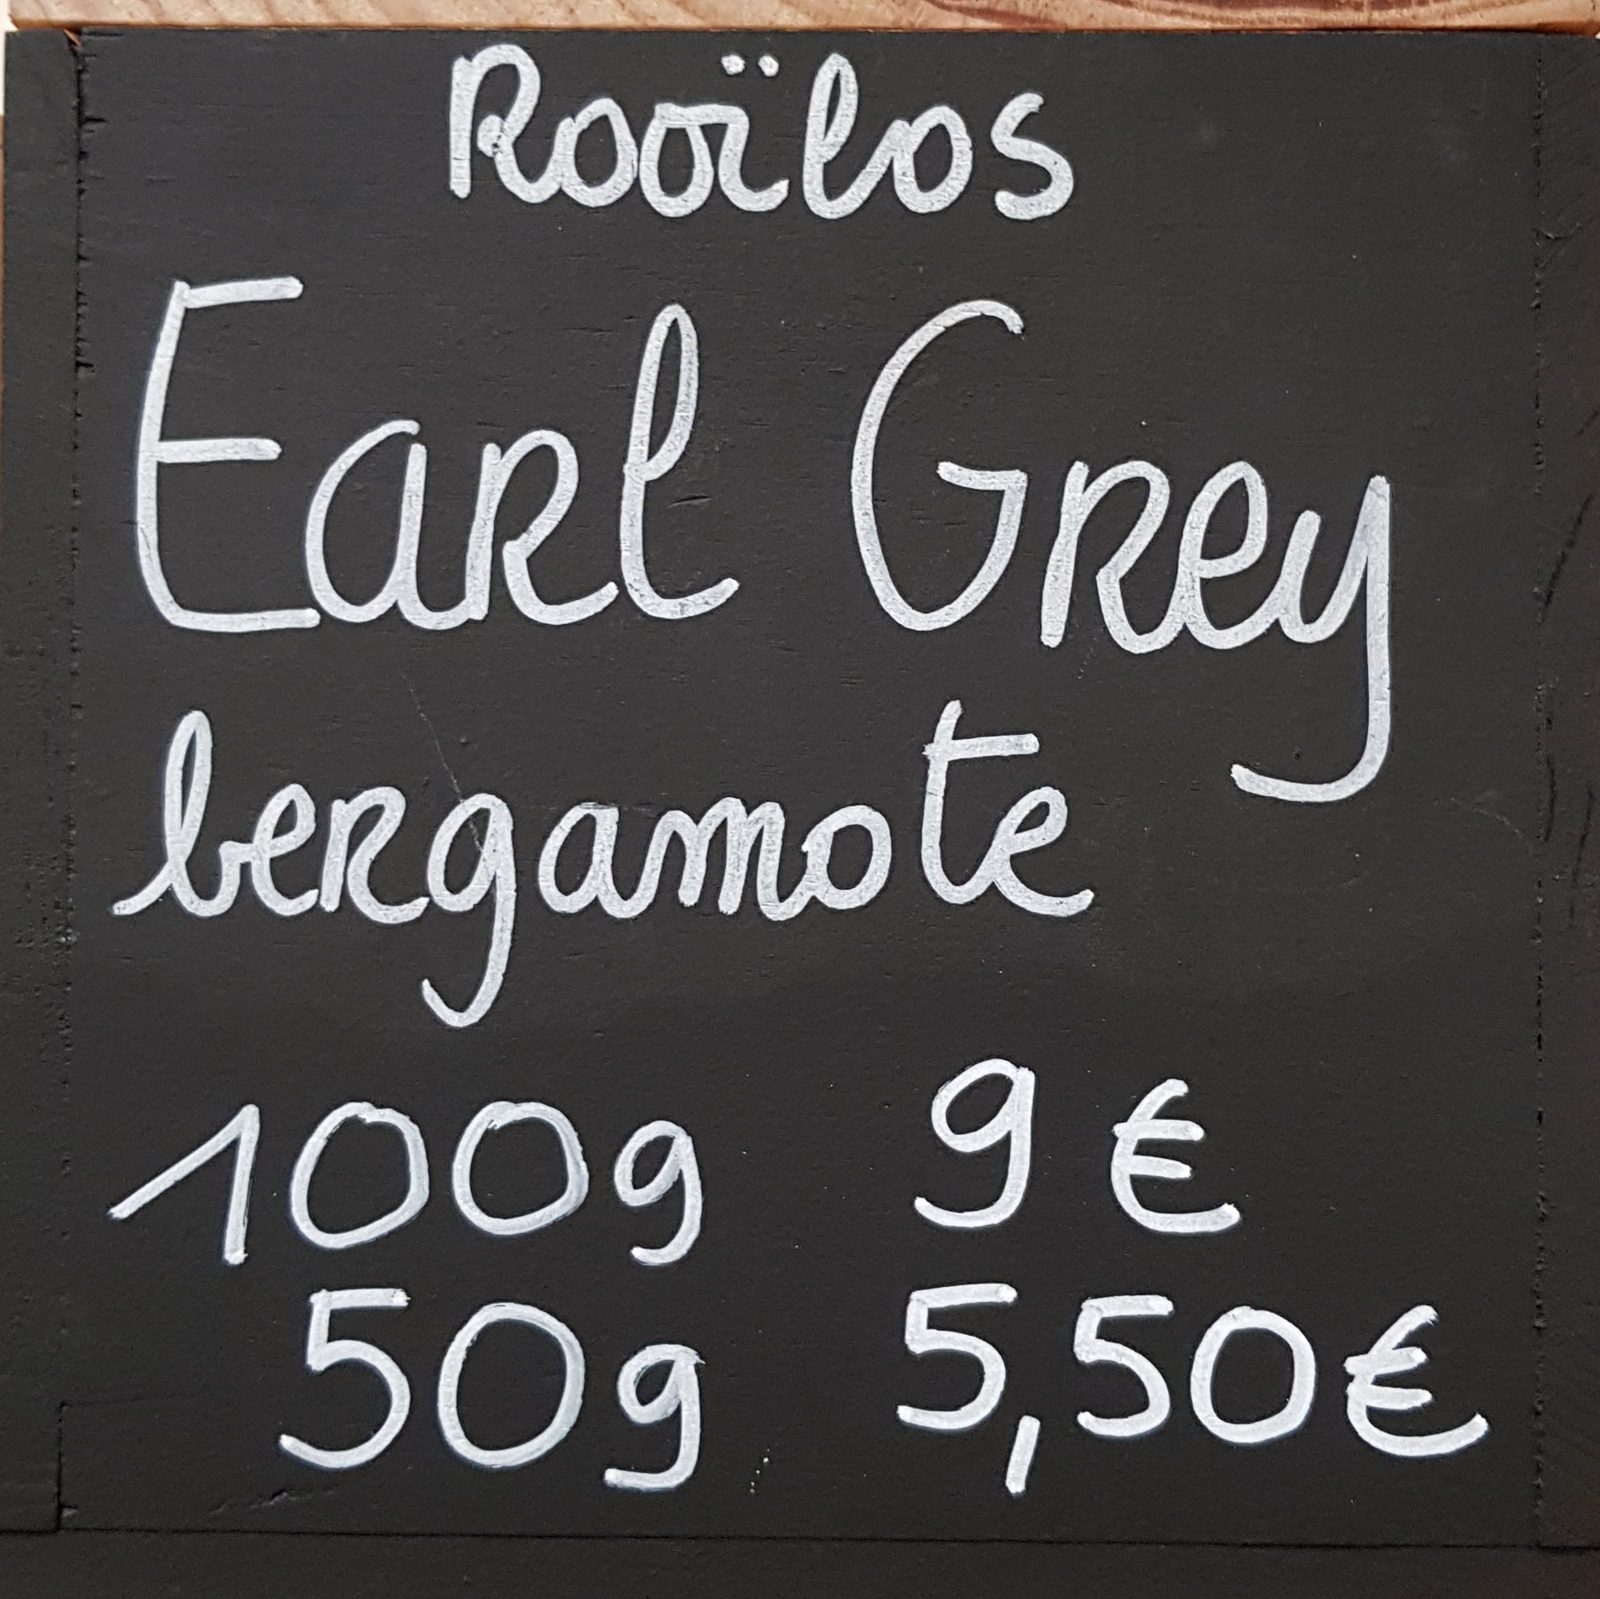 Rooïbos
Earl Grey
bergamote
100g 9 €
50g 5,50€